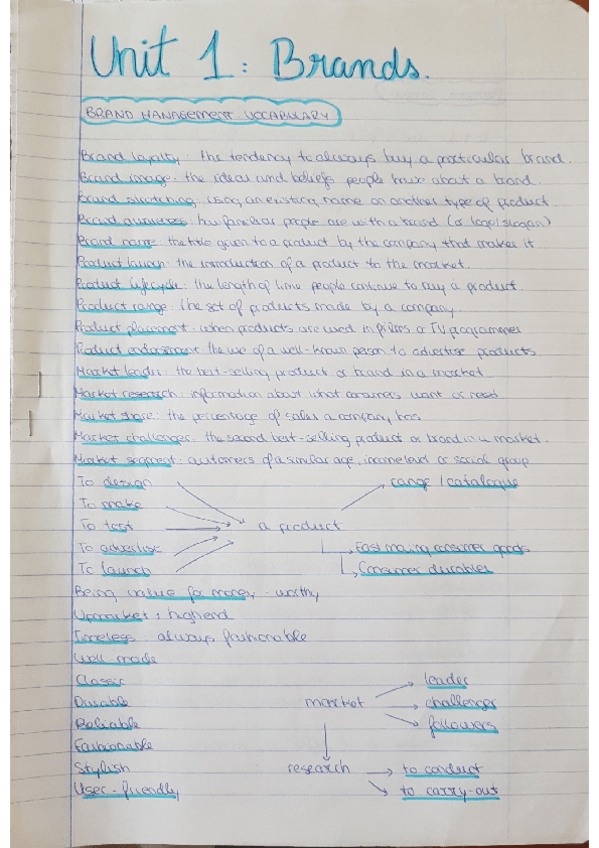 Unit 1: Brands.
BRAND MANAGEMENT VOCABULARY
Brand loyalty: the tendency to always buy a particular brand.
Brand image: the ideas and beliefs people have about a brand.
Brand stretching: using an existing name on another type of product.
Brand awareness: how familiar people are with a brand (or logo/slogan)
Brand name: the title given to a product by the company that makes it
Product launch: the introduction of a product to the market.
Product lifecycle: the length of time people continue to buy a product.
Product range: the set of products made by a company.
Product placement: when products are used in films or TV programmes
Product endorsement: the use of a well-known person to advertise products
Market leader: the best-selling product or brand in a market
Market research: information about what consumers want or need
Market share: the percentage of sales a company has
Market challenger: the second best-selling product or brand in a market.
Market segment: customers of a similar age, income level or social group
To design range / catalogue
To make
To test a product
To advertise Fast moving consumer goods
To launch Consumer durables
Being value for money - worthy
Upmarket: highend
Timeless: always fashionable
Well made
Classic leader
Durable market challenger
Reliable followers
Fashionable
Stylish research to conduct
User-friendly to carry-out